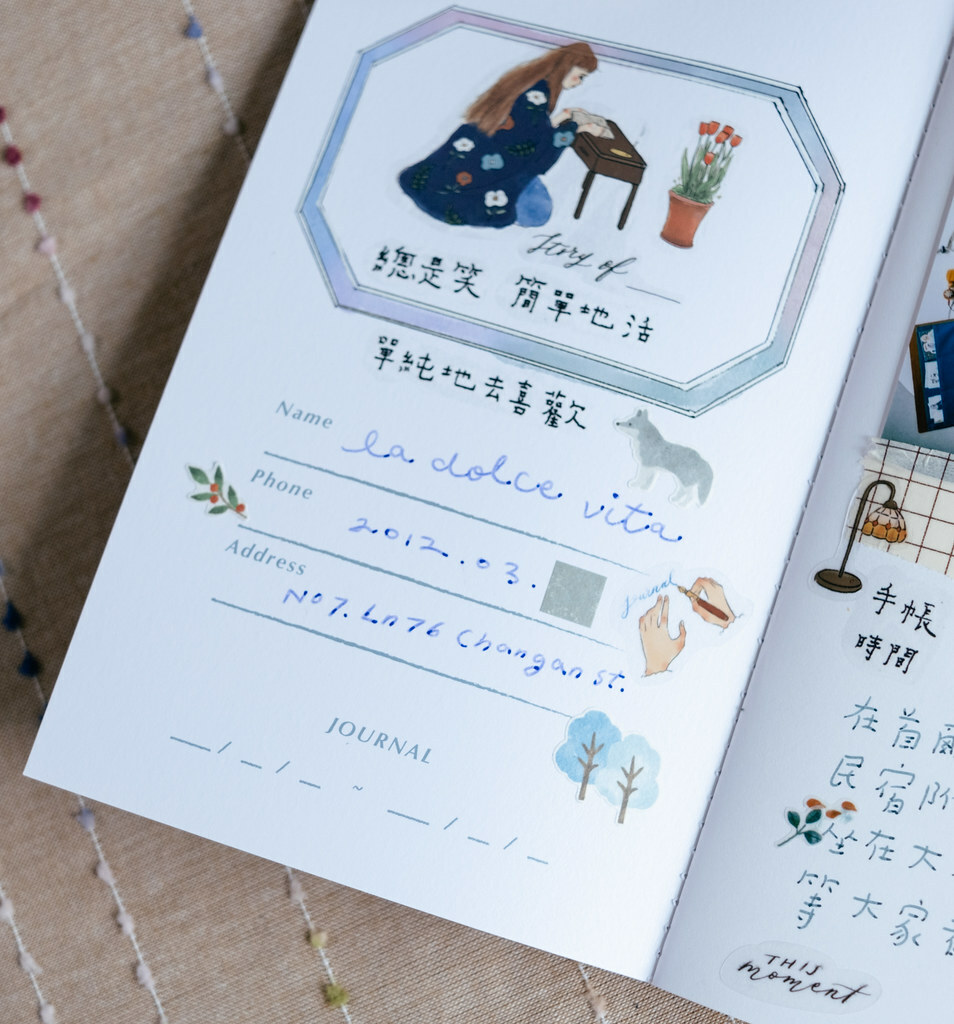 Story of
總是笑 簡單地活
單純地去喜歡
Name
la dolce vita
Phone
2012.03.
Address
No7. Ln76 Changan st.
JOURNAL
__/__/__ ~ __/__/__
Journal
手帳
時間
在首爾
民宿附
坐在大
等大家
THIS
moment